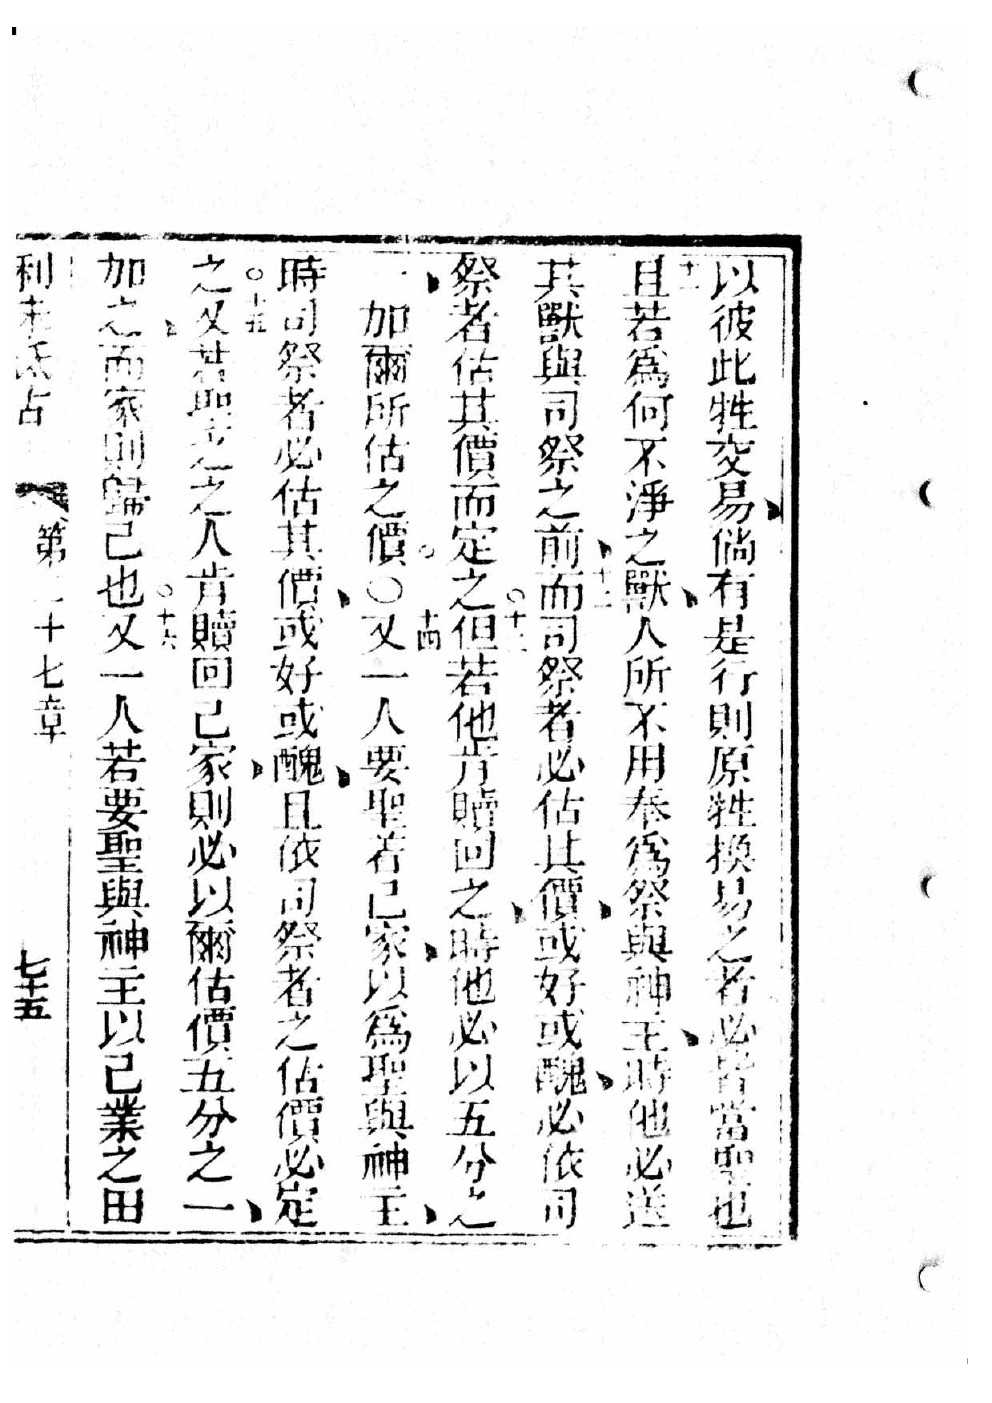 以彼此牲交易倘有是行則原牲換易之者必皆當聖也
十一
且若爲何不淨之獸人所不用奉爲祭與神主時他必送
其獸與司祭之前十二而司祭者必估其價或好或醜必依司
祭者估其價而定之○十三但若他肯贖回之時他必以五分之
一加爾所估之價○十四又一人要聖若己家以爲聖與神主
時司祭者必估其價或好或醜且依司祭者之估價必定
之○十五又若聖之之人肯贖回己家則必以爾估價五分之一
加之而家則歸己也○十六又一人若要聖與神主以己業之田
利未氏古 第二十七章 七十五